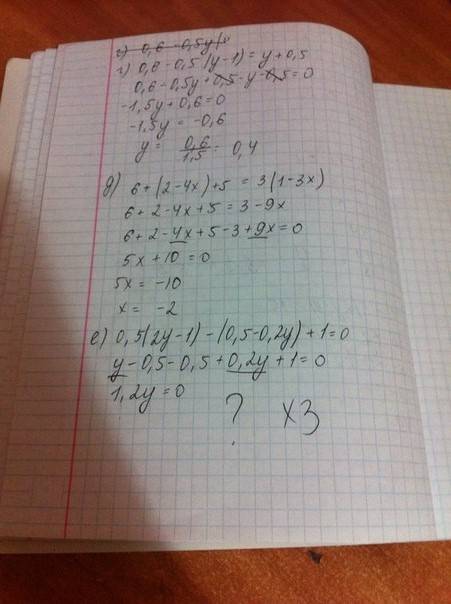 г) 0,6 - 0,5y(
г) 0,6 - 0,5(y-1) = y+0,5
0,6 - 0,5y + 0,5 - y - 0,5 = 0
-1,5y + 0,6 = 0
-1,5y = -0,6
y = 0,6/1,5 = 0,4
д) 6+(2-4x)+5 = 3(1-3x)
6+2-4x+5 = 3-9x
6+2-4x+5-3+9x=0
5x+10=0
5x = -10
x = -2
е) 0,5(2y-1)-(0,5-0,2y)+1=0
y-0,5-0,5+0,2y+1=0
1,2y=0
? х3